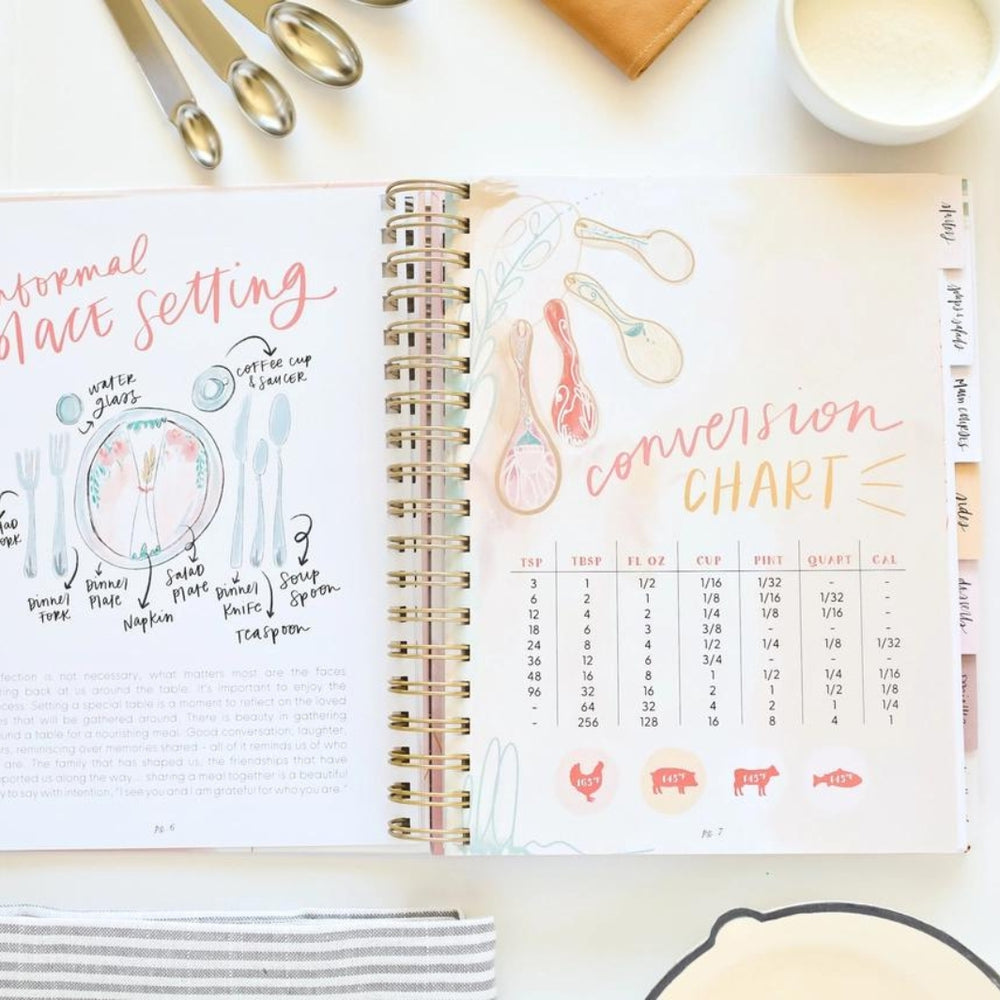 nformal
place setting
water
glass
coffee cup
& saucer
Dinner
Fork
Dinner
Plate
Napkin
Salad
Plate
Dinner
Knife
Teaspoon
Soup
Spoon
fection is not necessary, what matters most are the faces
ing back at us around the table. It's important to enjoy the
cess. Setting a special table is a moment to reflect on the loved
s that will be gathered around. There is beauty in gathering
und a table for a nourishing meal. Good conversation, laughter,
rs, reminiscing over memories shared - all of it reminds us of who
are. The family that has shaped us, the friendships that have
ported us along the way... sharing a meal together is a beautiful
y to say with intention, "I see you and I am grateful for who you are."
PG. 6
conversion
CHART
TSP TBSP FL OZ CUP PINT QUART GAL
3 1 1/2 1/16 1/32 - -
6 2 1 1/8 1/16 1/32 -
12 4 2 1/4 1/8 1/16 -
18 6 3 3/8 - - -
24 8 4 1/2 1/4 1/8 1/32
36 12 6 3/4 - - -
48 16 8 1 1/2 1/4 1/16
96 32 16 2 1 1/2 1/8
- 64 32 4 2 1 1/4
- 256 128 16 8 4 1
165°F 145°F 145°F 145°F
PG. 7
soups & salads
Main courses
sides
desserts